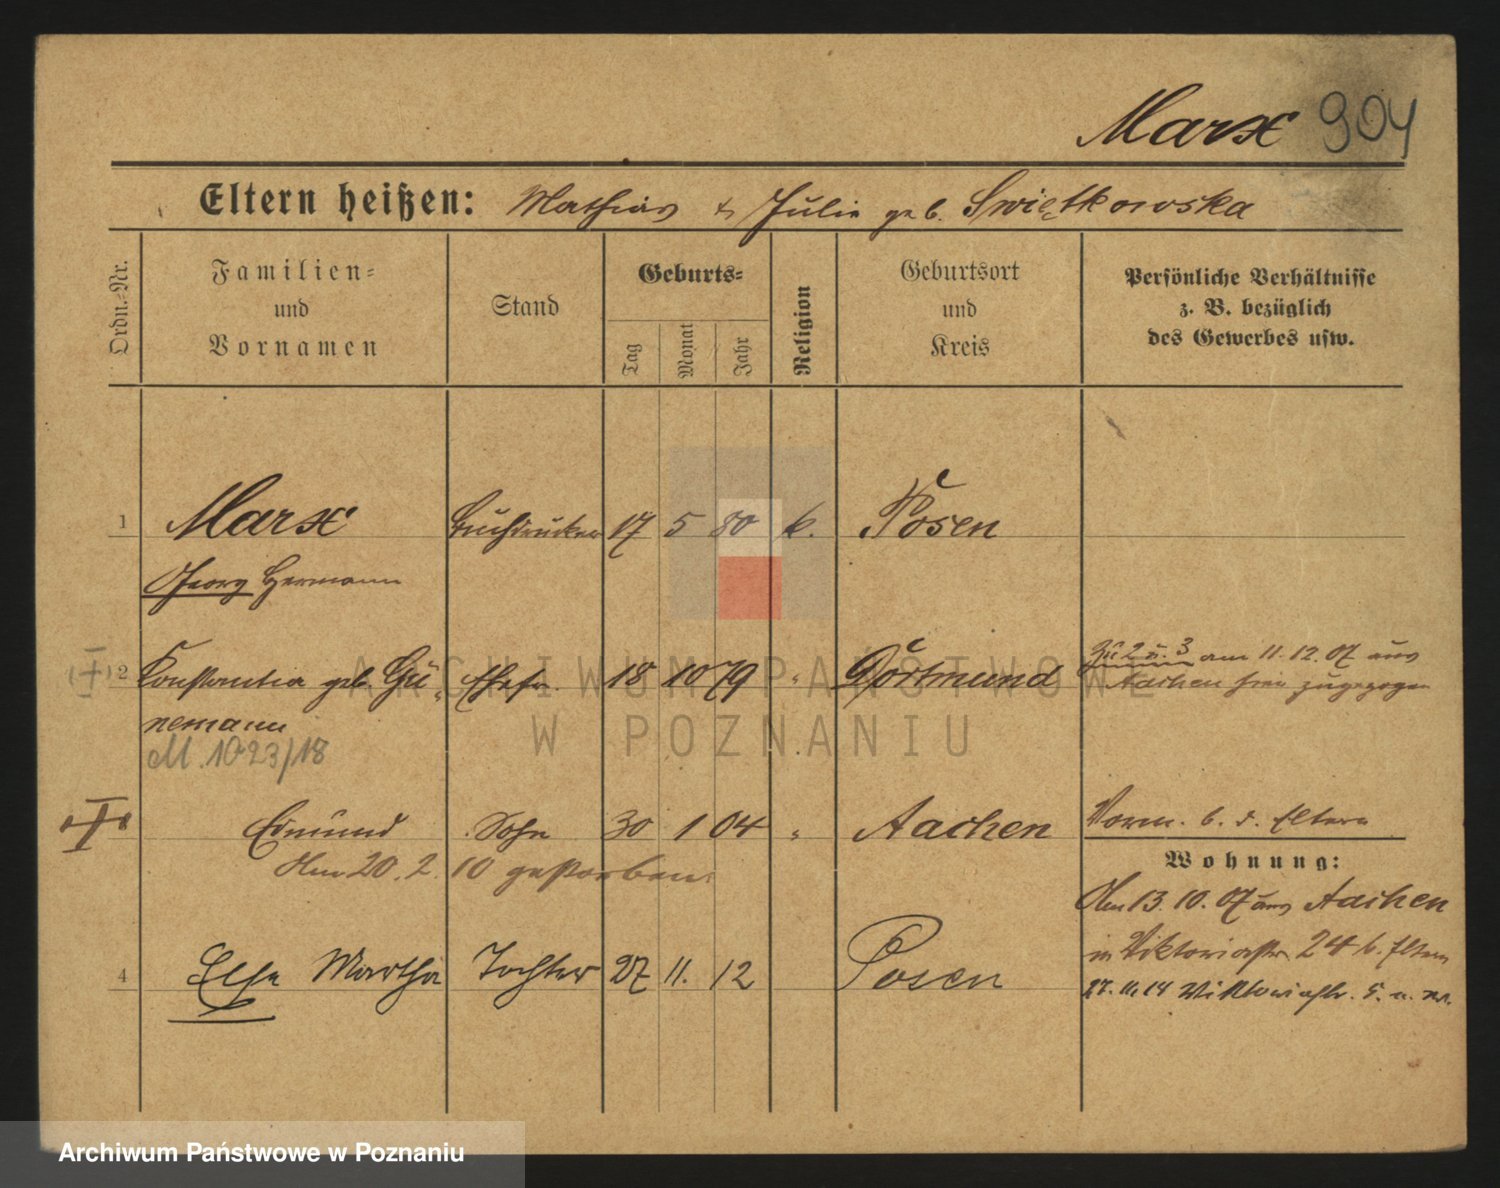 Marx 904
Eltern heißen: Mathias & Julie geb. Swiętkowska
Ordn.-Nr.
Familien-
und
Vornamen
Stand
Geburts-
Tag
Monat
Jahr
Religion
Geburtsort
und
Kreis
Persönliche Verhältnisse
z. B. bezüglich
des Gewerbes usw.
1 Marx Buchdrucker 17 5 80 k. Posen
Georg Hermann
2 Konstantia geb. Gü- Ehefr. 18 10 79 " Dortmund
nemann
M. 1023/18
Zu 2 u. 3 am 11.12.07 aus
Aachen hier zugezogen
Edmund Sohn 30 1 04 " Aachen
Am 20. 2. 10 gestorben.
Vorm. b. d. Eltern
Wohnung:
Am 13. 10. 07 aus Aachen
in Viktoriastr. 24 b. Eltern
27. 11. 14 Viktoriastr. 5.
4 Else Martha Tochter 27 11. 12 Posen
ARCHIWUM PAŃSTWOWE
W POZNANIU
Archiwum Państwowe w Poznaniu